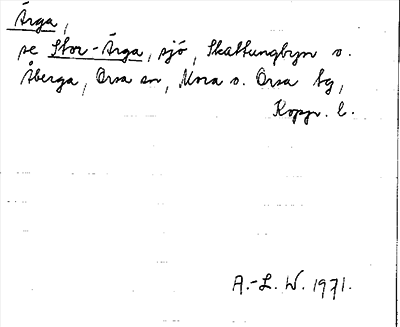 Ärga,
se Stor-Ärga, sjö, Skattungbyn o.
Åberga, Orsa sn, Mora o. Orsa tg,
Kopp. l.
A.-L. W. 1971.